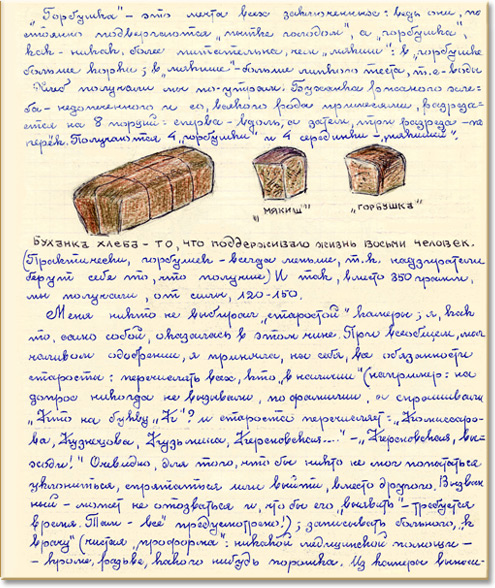 „Горбушка" – это мечта всех заключенных: ведь они, по-
стоянно подвергаются „пытке голодом", а „горбушка",
как-никак, более питательна, чем „мякиш": в „горбушке
больше корки; в „мякише" – больше липкого теста, т.е. воды
Хлеб получали мы по-утрам. Буханка ржаного хле-
ба – недопеченного и со, всякого рода примесями, разреза-
ется на 8 порций: сперва – вдоль, а затем, три разреза – по-
перёк. Получаются 4 „горбушки" и 4 серединки – „мякиши".
„МЯКИШ" „ГОРБУШКА"
Буханка хлеба – то, что поддерживало жизнь восьми человек.
(Практически, горбушек – всегда меньше, т.к. надзиратели
берут себе то, что получше) И так, вместо 350 грамм,
мы получали, от силы, 120-150.
Меня никто не выбирал „старостой" камеры; я, как
то, само собой, оказалась в этом чине. При всеобщем, мол-
чаливом одобрении, я приняла, на себя, все обязанности
старосты: перечислять всех, кто „в наличии" (например: на
допрос никогда не вызывали, по фамилии, а спрашивали
„Кто на букву „К"? и староста перечисляет: „Комиссаро-
ва, Кузнецова, Кузьмина, Керсновская...." – „Керсновская, вы-
ходи!" Очевидно, для того, что бы никто не мог попытаться
уклониться, спрятаться или выйти, вместо другого. Вызван-
ный – может не отозваться и, что бы его „выявить" – требуется
время. Там – всё предусмотрено!); записывать больного, „к
врачу" (чистая „проформа": никакой медицинской помощи –
– кроме, разве, какого нибудь порошка. Из камеры выноси-